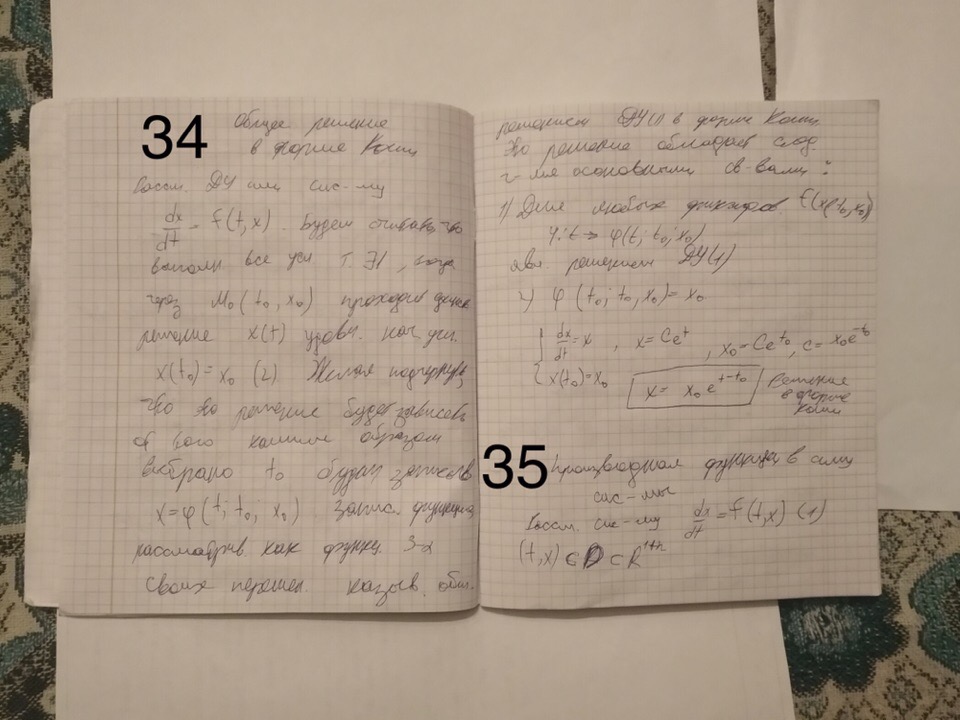 34
Общее решение
в форме Коши
Рассм. ДУ или сис-му
dx/dt = f(t,x). Будем считать, что
выполн все усл т. ∃!, тогда
через M₀(t₀, x₀) проходит
решение x(t) удовл. нач. усл.
x(t₀) = x₀ (2) Желая подчеркнуть,
что это решение будет зависеть
от того каким образом
выбрано t₀ будем записывать
x = φ(t; t₀; x₀). Запис. функция,
рассматрив как функц. 3-х
своих перемен. назыв. общ.
решением ДУ(1) в форме Коши
Это решение обладает след
2-мя основными св-вами:
1) Для любых фиксиров.
φ: t → φ(t; t₀; x₀)
явл. решением ДУ(1)
2) φ(t₀; t₀, x₀) = x₀
{ dx/dt = x, x = Ceᵗ, x₀ = Ceᵗ⁰, c = x₀e⁻ᵗ⁰
x(t₀) = x₀
x = x₀eᵗ⁻ᵗ⁰ Решение
в форме
Коши
35
Производная функции в силу
сис-мы
Рассм. сис-му dx/dt = f(t,x) (1)
(t,x) ∈ D ⊂ R¹⁺ⁿ